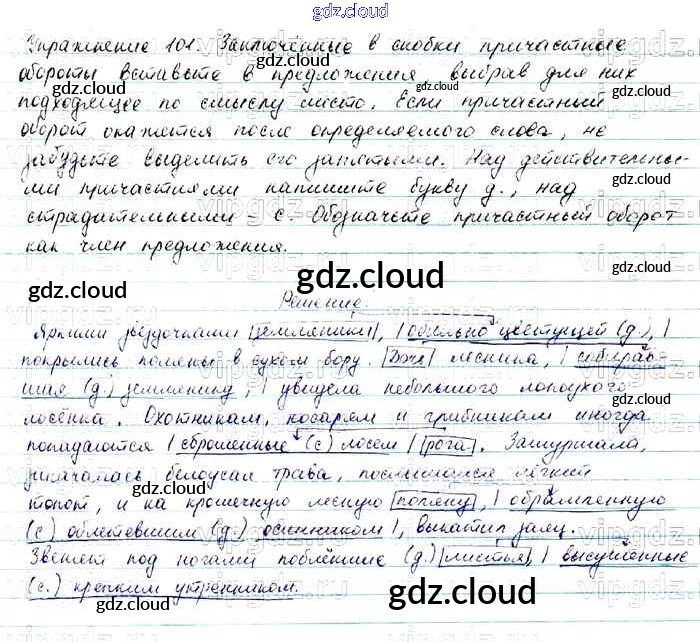 gdz.cloud
Упражнение 101. Заключённые в скобки причастные
обороты вставьте в предложения выбрав для них
подходящее по смыслу место. Если причастный
оборот окажется после определяемого слова, не
забудьте выделить его запятыми. Над действительны-
ми причастиями напишите букву д., над
страдательными - с. Обозначьте причастный оборот
как член предложения.
gdz.cloud
Решение.
Яркими звёздочками земляники, | обильно цветущей (д.), |
покрылись поляны в сухом бору. Дочь лесника, | собирав-
шая (д.) землянику, | увидела небольшого лопоухого
лосёнка. Охотникам, косарям и грибникам иногда
попадаются | сброшенные (с) лосем | рога. Зашуршала,
закачалась белоусая трава, послышался лёгкий
топот, и на крошечную лесную поляну, | обрамлённую
(с) облетевшим (д.) осинником |, выкатил заяц.
Звенят под ногами поблёкшие (д.) листья, | высушенные
(с.) крепким утренником.
gdz.cloud